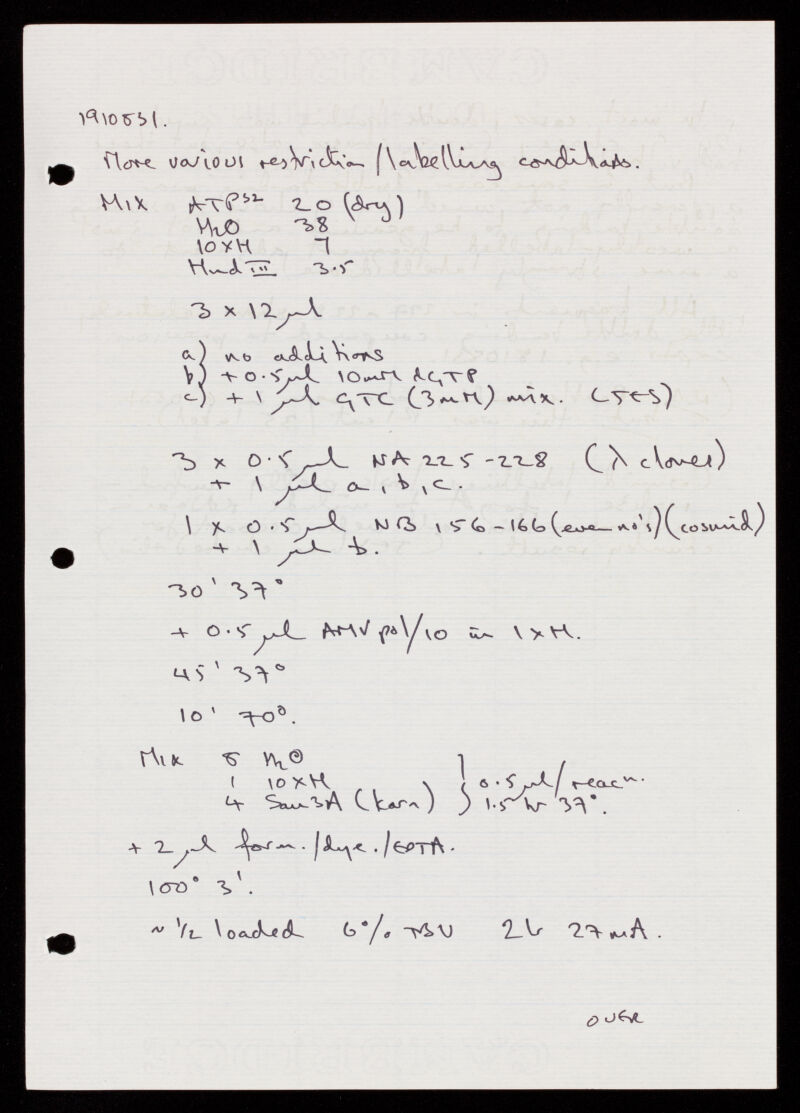 1910831.
More various restriction/labelling conditions.
Mix ATP³² 20 (dry)
H₂O 38
10xH 7
Hind III 3.5
3 x 12 µl
a) no additions
b) + 0.5 µl 10mM dGTP
c) + 1 µl GTC (3mM) mix. (JES)
3 x 0.5 µl NA 225-228 (λ clones)
+ 1 µl a, b, c.
1 x 0.5 µl NB 156-166 (even no's) (cosmid)
+ 1 µl b.
30' 37°
+ 0.5 µl AMV pol/10 in 1xH.
45' 37°
10' 70°.
Mix 8 H₂O
1 10xH } 0.5 µl/reacn.
4 Sau3A (Karn) 1.5 hr 37°.
+ 2 µl form./dye./EDTA.
100° 3'.
~ 1/2 loaded 6% TBU 2h 27mA.
OVER